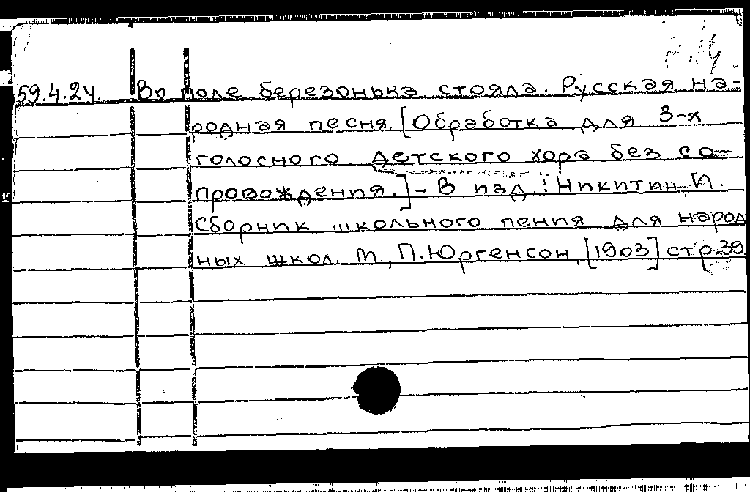 59.4.24. Во поле березонька стояла. Русская на-
родная песня. [Обработка для 3-х
голосного детского хора без со-
провождения.] - В изд.: Никитин, И.
Сборник школьного пения для народ
ных школ. М., П. Юргенсон, [1903] стр. 39